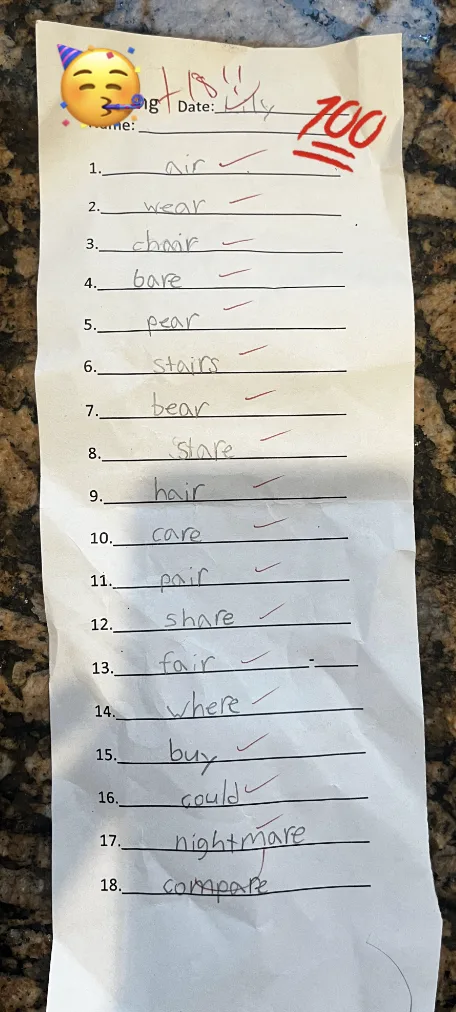 ng +18 !!
Date: Lily
Name:
100
1. air
2. wear
3. chair
4. bare
5. pear
6. stairs
7. bear
8. stare
9. hair
10. care
11. pair
12. share
13. fair
14. where
15. buy
16. could
17. nightmare
18. compare